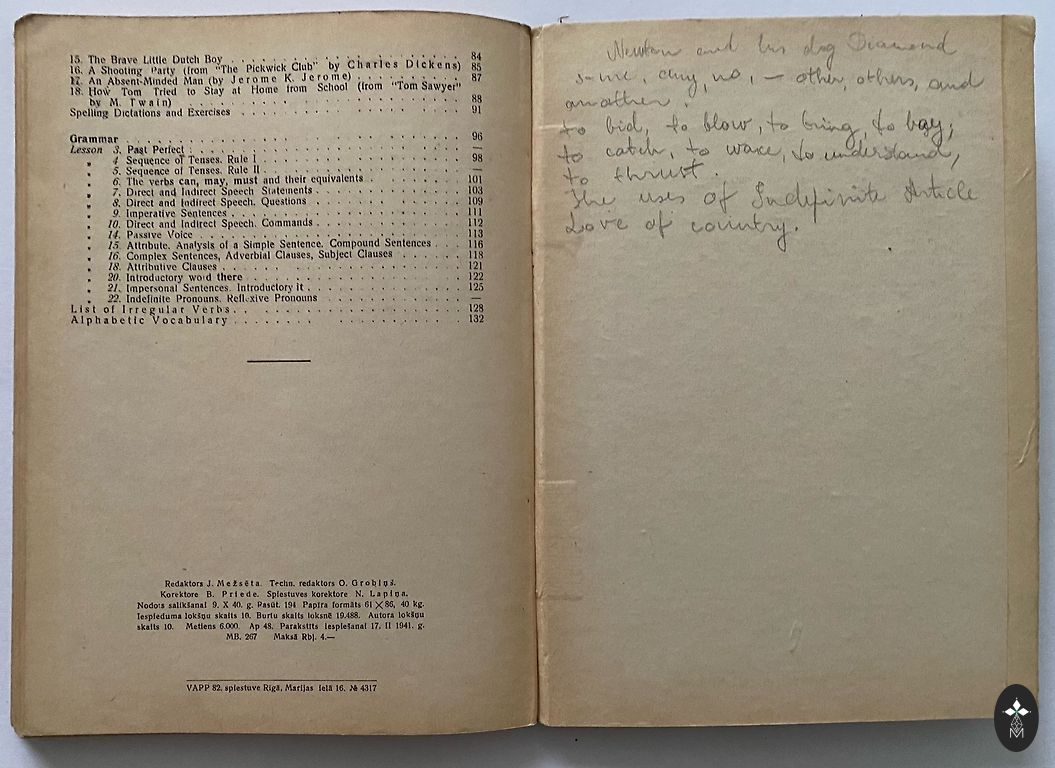 15. The Brave Little Dutch Boy . . . . 84
16. A Shooting Party (from "The Pickwick Club" by Charles Dickens) 85
17. An Absent-Minded Man (by Jerome K. Jerome) . . . . 87
18. How Tom Tried to Stay at Home from School (from "Tom Sawyer"
by M. Twain) . . . . 88
Spelling Dictations and Exercises . . . . 91
Grammar . . . . 96
Lesson 3. Past Perfect . . . . —
„ 4. Sequence of Tenses. Rule I . . . . 98
„ 5. Sequence of Tenses. Rule II . . . . —
„ 6. The verbs can, may, must and their equivalents . . . . 101
„ 7. Direct and Indirect Speech Statements . . . . 103
„ 8. Direct and Indirect Speech. Questions . . . . 109
„ 9. Imperative Sentences . . . . 111
„ 10. Direct and Indirect Speech. Commands . . . . 112
„ 14. Passive Voice . . . . 113
„ 15. Attribute. Analysis of a Simple Sentence. Compound Sentences . . . . 116
„ 16. Complex Sentences, Adverbial Clauses, Subject Clauses . . . . 118
„ 18. Attributive Clauses . . . . 121
„ 20. Introductory word there . . . . 122
„ 21. Impersonal Sentences. Introductory it . . . . 125
„ 22. Indefinite Pronouns. Reflexive Pronouns . . . . —
List of Irregular Verbs . . . . 128
Alphabetic Vocabulary . . . . 132
Redaktors J. Mežsēta. Techn. redaktors O. Grobiņš.
Korektore B. Priede. Spiestuves korektore N. Lapiņa.
Nodots salikšanai 9. X 40. g. Pasūt. 194 Papīra formāts 61×86, 40 kg.
Iespieduma lokšņu skaits 10. Burtu skaits loksnē 19.488. Autora lokšņu
skaits 10. Metiens 6.000. Ap 48. Parakstīts iespiešanai 17. II 1941. g.
MB. 267 Maksā Rbļ. 4.—
VAPP 82. spiestuve Rīgā, Marijas ielā 16. № 4317
Newton and his dog Diamond
some, any, no, — other, others, and
another.
to bid, to blow, to bring, to buy,
to catch, to wake, to understand,
to thrust.
The uses of Indefinite Article
Love of country.
M